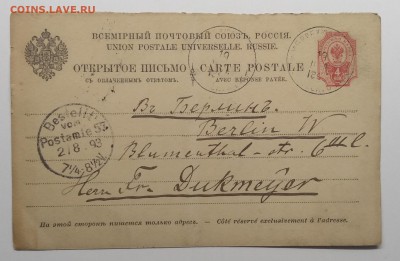 COINS.LAVE.RU
ВСЕМІРНЫЙ ПОЧТОВЫЙ СОЮЗЪ. РОССІЯ.
UNION POSTALE UNIVERSELLE. RUSSIE.
ОТКРЫТОЕ ПИСЬМО CARTE POSTALE
СЪ ОПЛАЧЕННЫМЪ ОТВѢТОМЪ. AVEC RÉPONSE PAYÉE.
Въ Берлинъ.
Berlin W
Bestellt
vom
Postamte
2.8.93
Blumenthal-str.
Herrn Fr. Dukmeyer
На этой сторонѣ пишется только адресъ. — Côté réservé exclusivement à l'adresse.